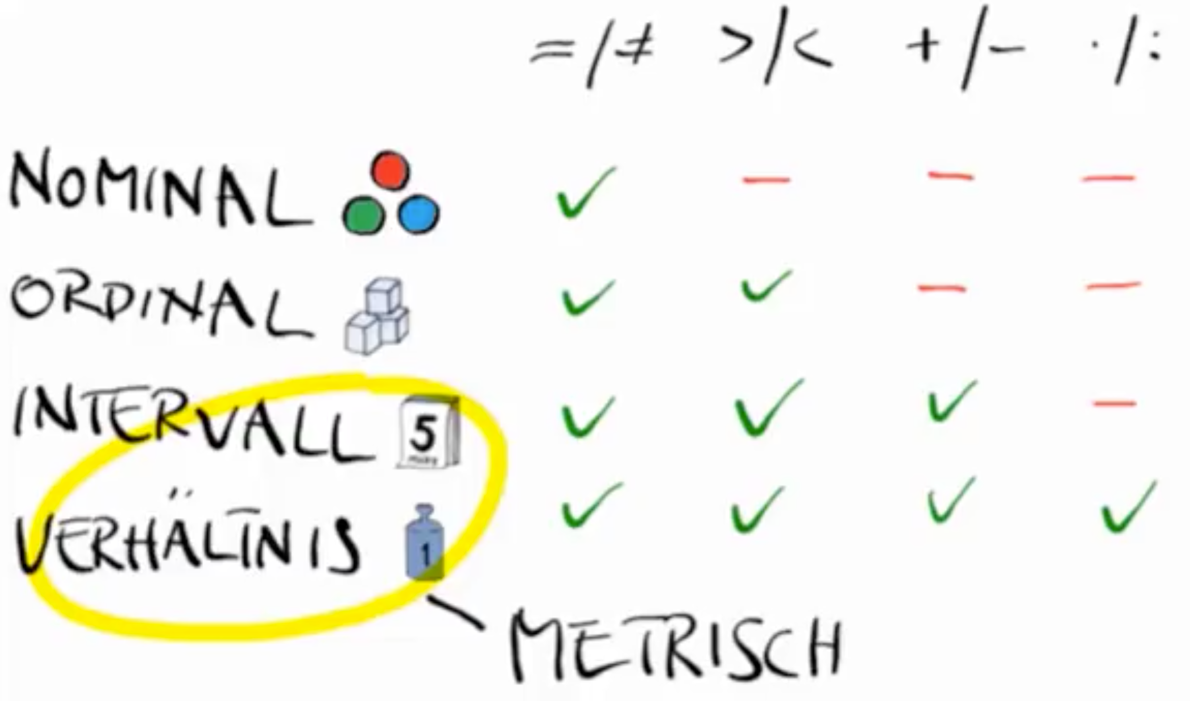 =/≠ >/< +/− ·/:
NOMINAL ✓ − − −
ORDINAL ✓ ✓ − −
INTERVALL 5 ✓ ✓ ✓ −
VERHÄLTNIS 1 ✓ ✓ ✓ ✓
METRISCH